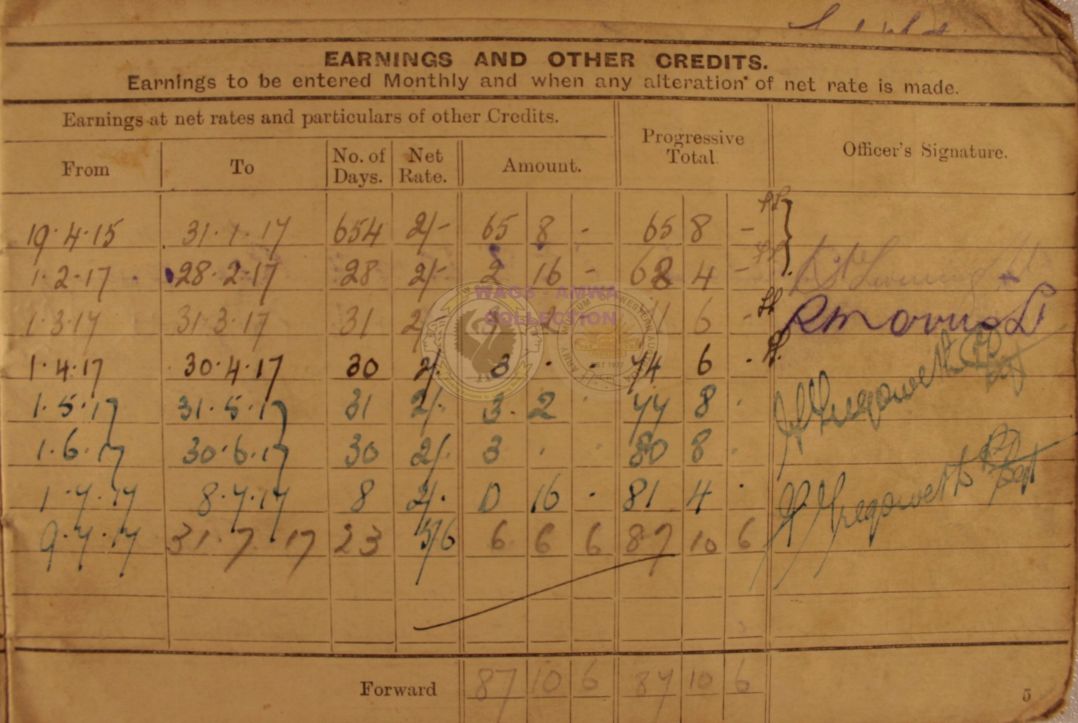 EARNINGS AND OTHER CREDITS.
Earnings to be entered Monthly and when any alteration of net rate is made.
Earnings at net rates and particulars of other Credits.
Progressive Total.
Officer's Signature.
From To No. of Days. Net Rate. Amount.
19.4.15 31.1.17 654 2/- 65 8 - 65 8 -
1.2.17 28.2.17 28 2/- 2 16 - 68 4 -
WAGS - AMWA
COLLECTION
1.3.17 31.3.17 31 2 1 6 -
1.4.17 30.4.17 30 2/. 3 . . 74 6 .
1.5.17 31.5.17 31 2/. 3 . 2 . 77 8 .
1.6.17 30.6.17 30 2/. 3 . . 80 8 .
1.7.17 8.7.17 8 2/. 0 16 . 81 4 .
9.7.17 31.7.17 23 5/6 6 6 6 87 10 6
Forward 87 10 6 87 10 6
5